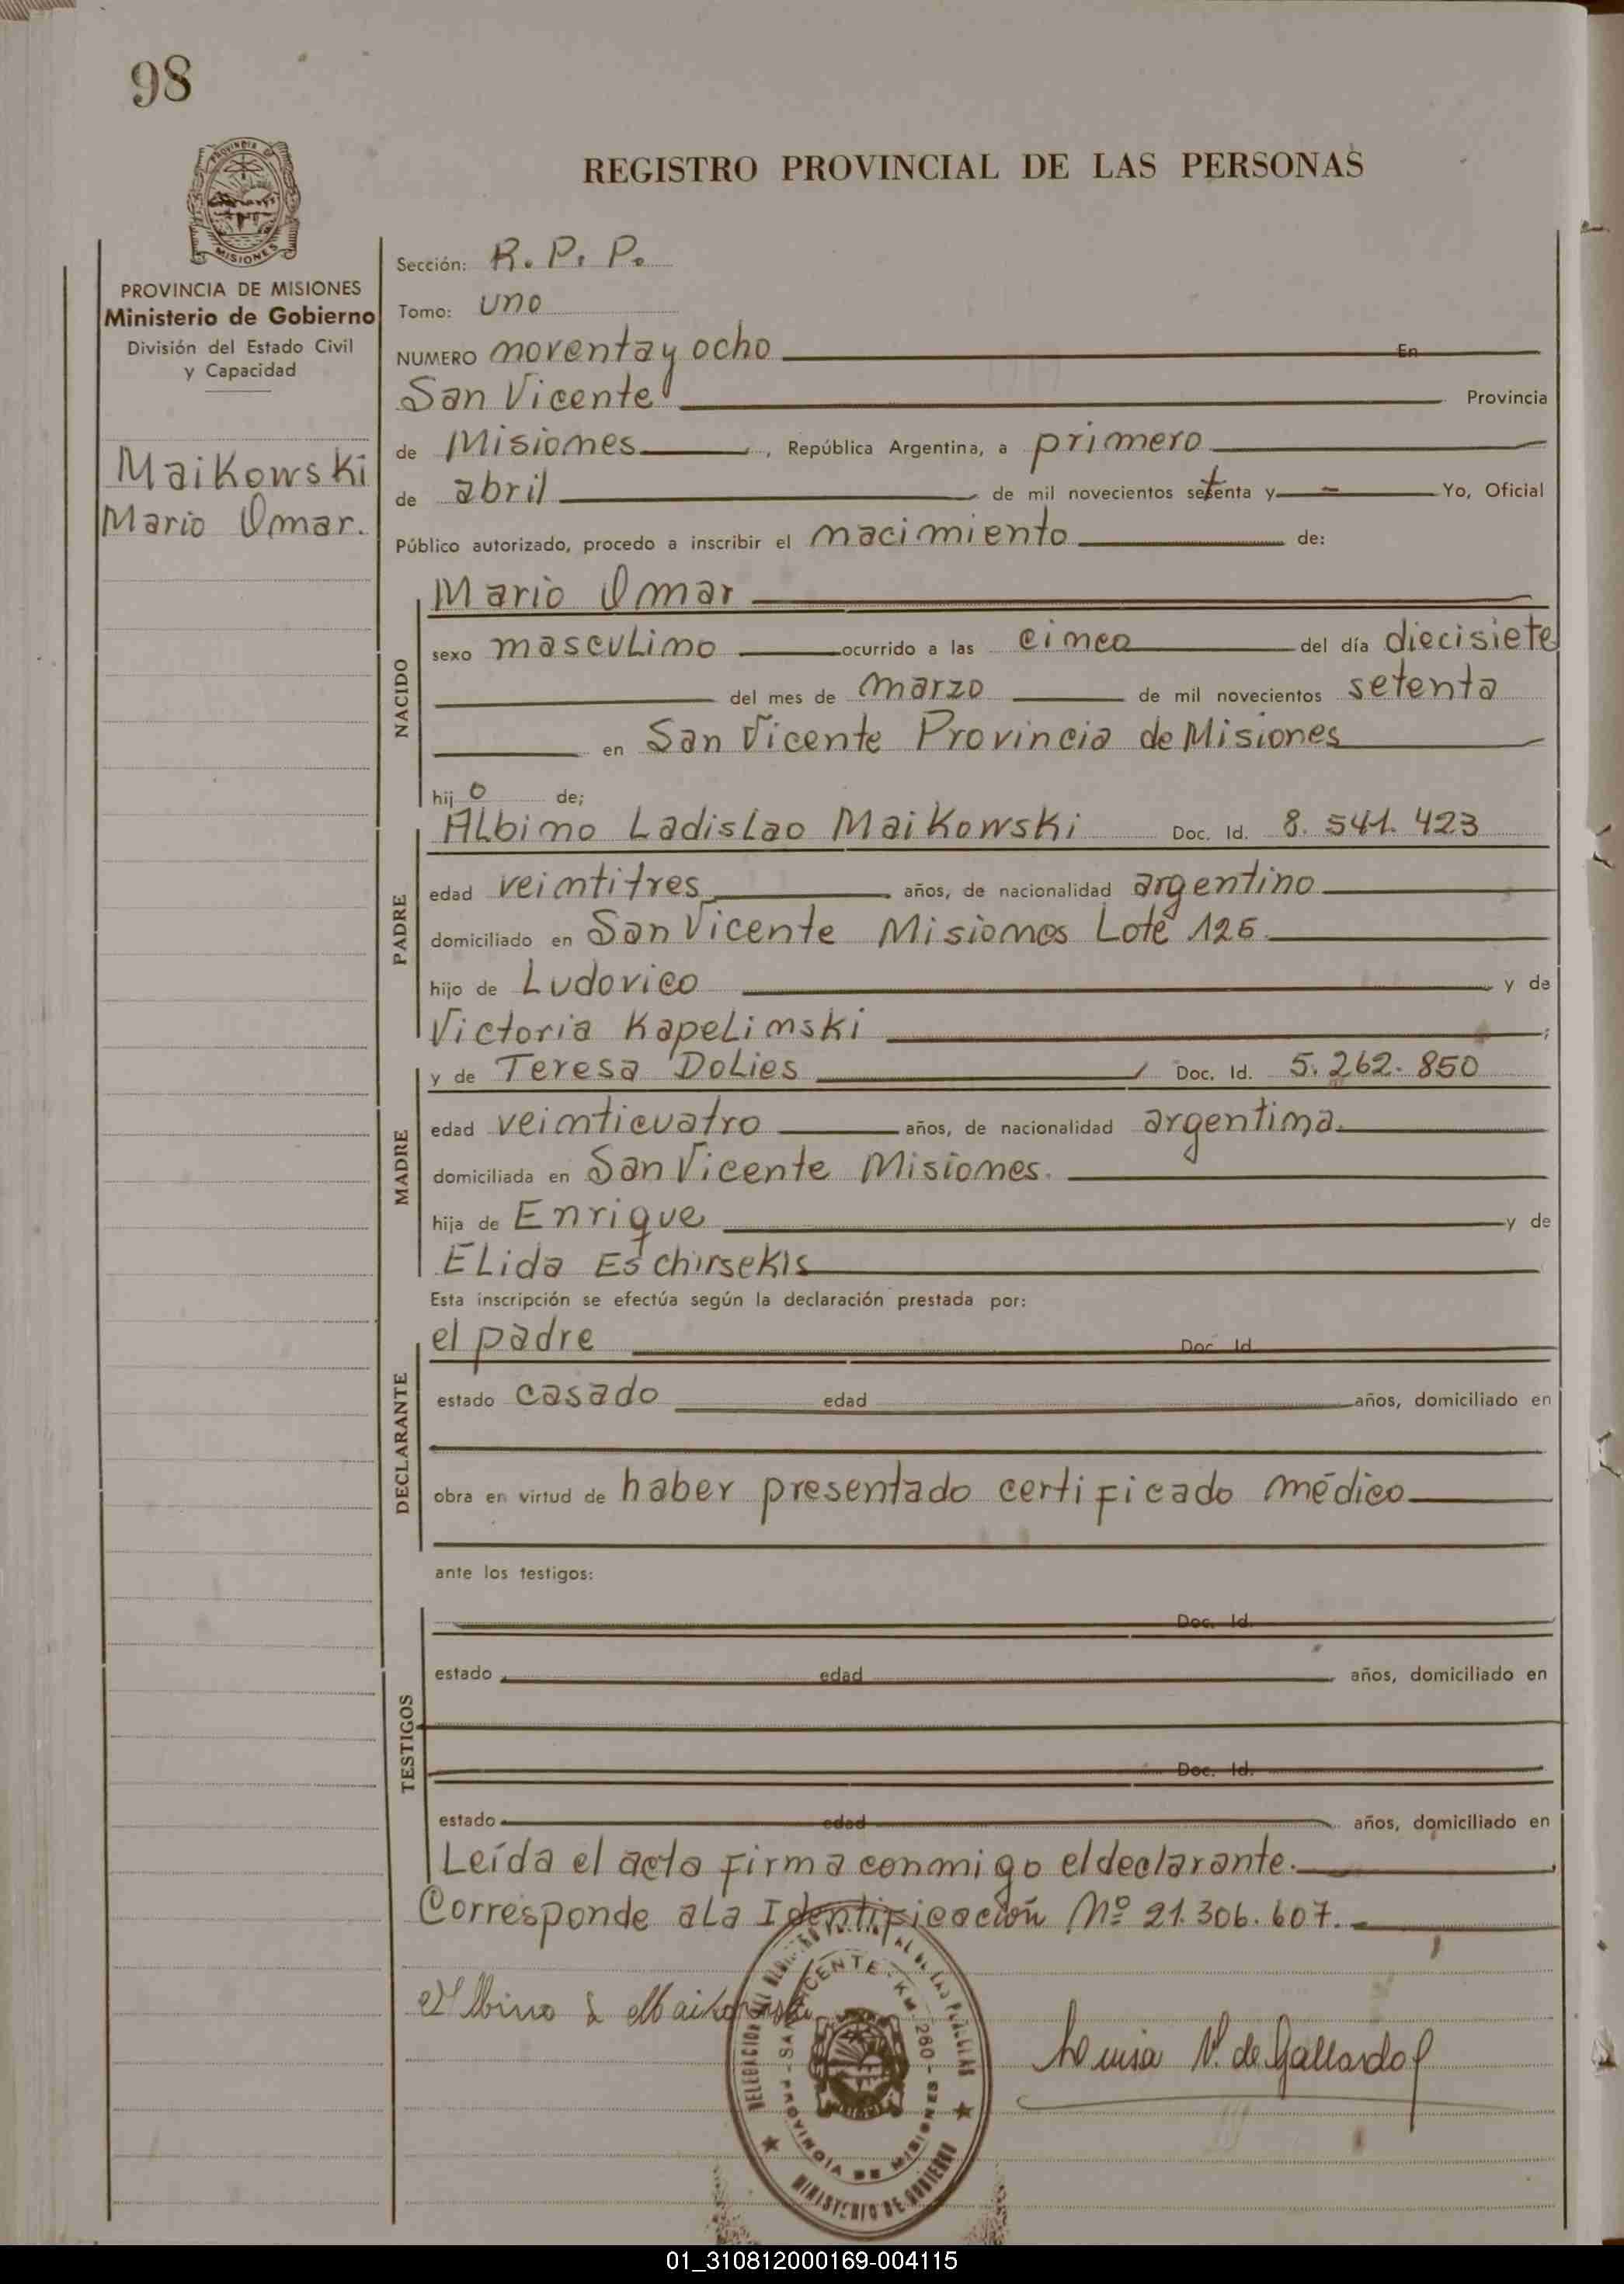 98
PROVINCIA DE
MISIONES
REGISTRO PROVINCIAL DE LAS PERSONAS
PROVINCIA DE MISIONES
Ministerio de Gobierno
División del Estado Civil
y Capacidad
Maikowski
Mario Omar.
Sección: R. P. P.
Tomo: uno
NUMERO noventa y ocho En
San Vicente Provincia
de Misiones, República Argentina, a primero
de abril de mil novecientos setenta y - Yo, Oficial
Público autorizado, procedo a inscribir el nacimiento de:
NACIDO
Mario Omar
sexo masculino ocurrido a las cinco del día diecisiete
del mes de marzo de mil novecientos setenta
en San Vicente Provincia de Misiones
hijo de;
PADRE
Albino Ladislao Maikowski Doc. Id. 8.541.423
edad veintitres años, de nacionalidad argentino
domiciliado en San Vicente Misiones Lote 126
hijo de Ludovico y de
Victoria Kapelinski;
MADRE
y de Teresa Dolies Doc. Id. 5.262.850
edad veinticuatro años, de nacionalidad argentina.
domiciliada en San Vicente Misiones.
hija de Enrique y de
Elida Eschirsekis
Esta inscripción se efectúa según la declaración prestada por:
DECLARANTE
el padre Doc. Id.
estado casado edad años, domiciliado en
obra en virtud de haber presentado certificado médico
ante los testigos:
TESTIGOS
Doc. Id.
estado edad años, domiciliado en
Doc. Id.
estado edad años, domiciliado en
Leída el acta firma conmigo el declarante.
Corresponde a la Identificación Nº 21.306.607.
Albino L Maikowski
SAN VICENTE - KM 260 - MISIONES
PROVINCIA DE MISIONES
MINISTERIO DE GOBIERNO
Luisa V. de Gallardo
01_310812000169-004115